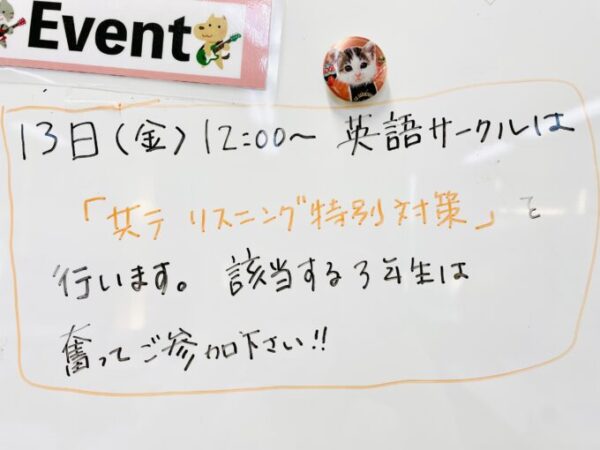 Event
13日(金)12:00〜 英語サークルは
「共テ リスニング特別対策」を
行います。 該当する3年生は
奮ってご参加下さい!!